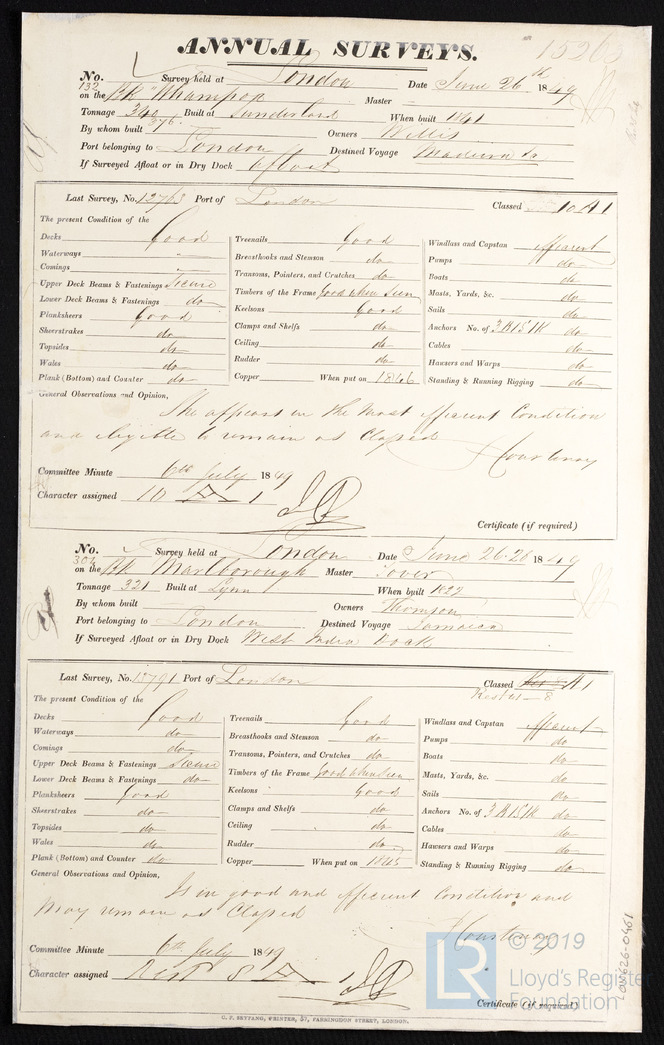 15263
ANNUAL SURVEYS.
No. 132 Survey held at London Date June 26th 1849
on the Bk "Whampoa Master
Tonnage 346 376 Built at Sunderland When built 1841
By whom built Owners Willis
Port belonging to London Destined Voyage Madeira &c
If Surveyed Afloat or in Dry Dock Afloat
Last Survey, No. 12763 Port of London Classed 10 A1
The present Condition of the
Decks Good
Waterways "
Comings "
Upper Deck Beams & Fastenings Secure
Lower Deck Beams & Fastenings do
Planksheers Good
Sheerstrakes do
Topsides do
Wales do
Plank (Bottom) and Counter do
Treenails Good
Breasthooks and Stemson do
Transoms, Pointers, and Crutches do
Timbers of the Frame Good when seen
Keelsons Good
Clamps and Shelfs do
Ceiling do
Rudder do
Copper When put on 1846
Windlass and Capstan efficient
Pumps do
Boats do
Masts, Yards, &c. do
Sails do
Anchors No. of 3 B 1 S 1 K do
Cables do
Hawsers and Warps do
Standing & Running Rigging do
General Observations and Opinion,
She appears in the most efficient Condition
and eligible to remain as Classed
Courtenay
Committee Minute 6th July 1849
Character assigned 10 A 1
Certificate (if required)
No. 304 Survey held at London Date June 26-28 1849
on the Bk Marlborough Master
Tonnage 321 Built at Lynn When built 1822
By whom built Owners Thomson
Port belonging to London Destined Voyage Jamaica
If Surveyed Afloat or in Dry Dock West India Dock
Last Survey, No. Port of London Classed A1
Rest 8
The present Condition of the
Decks Good
Waterways do
Comings do
Upper Deck Beams & Fastenings Secure
Lower Deck Beams & Fastenings do
Planksheers Good
Sheerstrakes do
Topsides do
Wales do
Plank (Bottom) and Counter do
Treenails Good
Breasthooks and Stemson do
Transoms, Pointers, and Crutches do
Timbers of the Frame Good when seen
Keelsons Good
Clamps and Shelfs do
Ceiling do
Rudder do
Copper When put on 1845
Windlass and Capstan efficient
Pumps do
Boats do
Masts, Yards, &c. do
Sails do
Anchors No. of 3 B 1 S 1 K do
Cables do
Hawsers and Warps do
Standing & Running Rigging do
General Observations and Opinion,
Is in good and efficient Condition and
May remain as Classed
Courtenay
Committee Minute 6th July 1849
Character assigned Rest 8 A
Certificate (if required)
C. F. SEYFANG, PRINTER, 57, FARRINGDON STREET, LONDON.
LON626-0461
LR
© 2019
Lloyd's Register
Foundation